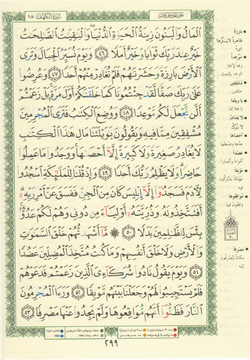 سورة الكهف ١٨
ٱلْمَالُ وَٱلْبَنُونَ زِينَةُ ٱلْحَيَوٰةِ ٱلدُّنْيَا وَٱلْبَٰقِيَٰتُ ٱلصَّٰلِحَٰتُ
خَيْرٌ عِندَ رَبِّكَ ثَوَابًا وَخَيْرٌ أَمَلًا ٤٦ وَيَوْمَ نُسَيِّرُ ٱلْجِبَالَ وَتَرَى
ٱلْأَرْضَ بَارِزَةً وَحَشَرْنَٰهُمْ فَلَمْ نُغَادِرْ مِنْهُمْ أَحَدًا ٤٧ وَعُرِضُوا۟
عَلَىٰ رَبِّكَ صَفًّا لَّقَدْ جِئْتُمُونَا كَمَا خَلَقْنَٰكُمْ أَوَّلَ مَرَّةٍۭ بَلْ زَعَمْتُمْ
أَلَّن نَّجْعَلَ لَكُم مَّوْعِدًا ٤٨ وَوُضِعَ ٱلْكِتَٰبُ فَتَرَى ٱلْمُجْرِمِينَ
مُشْفِقِينَ مِمَّا فِيهِ وَيَقُولُونَ يَٰوَيْلَتَنَا مَالِ هَٰذَا ٱلْكِتَٰبِ
لَا يُغَادِرُ صَغِيرَةً وَلَا كَبِيرَةً إِلَّآ أَحْصَىٰهَا وَوَجَدُوا۟ مَا عَمِلُوا۟
حَاضِرًا وَلَا يَظْلِمُ رَبُّكَ أَحَدًا ٤٩ وَإِذْ قُلْنَا لِلْمَلَٰٓئِكَةِ ٱسْجُدُوا۟
لِءَادَمَ فَسَجَدُوٓا۟ إِلَّآ إِبْلِيسَ كَانَ مِنَ ٱلْجِنِّ فَفَسَقَ عَنْ أَمْرِ رَبِّهِۦٓ
أَفَتَتَّخِذُونَهُۥ وَذُرِّيَّتَهُۥٓ أَوْلِيَآءَ مِن دُونِى وَهُمْ لَكُمْ عَدُوٌّۢ
بِئْسَ لِلظَّٰلِمِينَ بَدَلًا ٥٠ مَّآ أَشْهَدتُّهُمْ خَلْقَ ٱلسَّمَٰوَٰتِ
وَٱلْأَرْضِ وَلَا خَلْقَ أَنفُسِهِمْ وَمَا كُنتُ مُتَّخِذَ ٱلْمُضِلِّينَ عَضُدًا
٥١ وَيَوْمَ يَقُولُ نَادُوا۟ شُرَكَآءِىَ ٱلَّذِينَ زَعَمْتُمْ فَدَعَوْهُمْ
فَلَمْ يَسْتَجِيبُوا۟ لَهُمْ وَجَعَلْنَا بَيْنَهُم مَّوْبِقًا ٥٢ وَرَءَا ٱلْمُجْرِمُونَ
ٱلنَّارَ فَظَنُّوٓا۟ أَنَّهُم مُّوَاقِعُوهَا وَلَمْ يَجِدُوا۟ عَنْهَا مَصْرِفًا ٥٣
٢٩٩